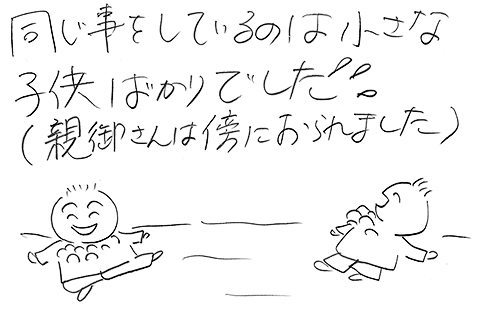 同じ事をしているのは小さな
子供ばかりでした!!
(親御さんは傍におられました)